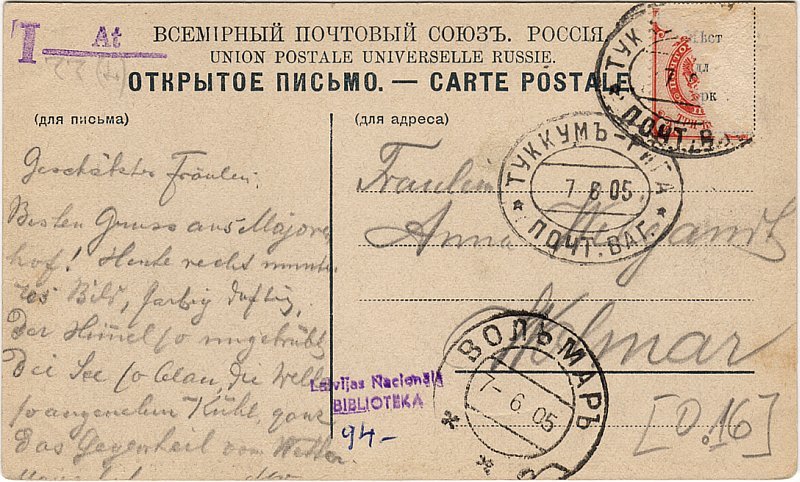 T At
ВСЕМІРНЫЙ ПОЧТОВЫЙ СОЮЗЪ. РОССІЯ.
UNION POSTALE UNIVERSELLE RUSSIE.
ОТКРЫТОЕ ПИСЬМО. — CARTE POSTALE
(для письма)
(для адреса)
Geschätztes Fräulein.
Besten Gruss aus Majoren-
hof! Heute recht
Bild, farbig duftig,
Der Himmel so ungetrübt
Die See so blau, die Welle
so angenehm kühl, ganz
das Gegenteil vom Wetter.
Fräulein
Anna
Wolmar
ТУККУМЪ-РИГА
7 6 05
ПОЧТ. ВАГ.
ТУК
7
ПОЧТ. В
ВОЛЬМАРЪ
7- 6. 05
Latvijas Nacionālā
BIBLIOTEKA
94-
[0.16]